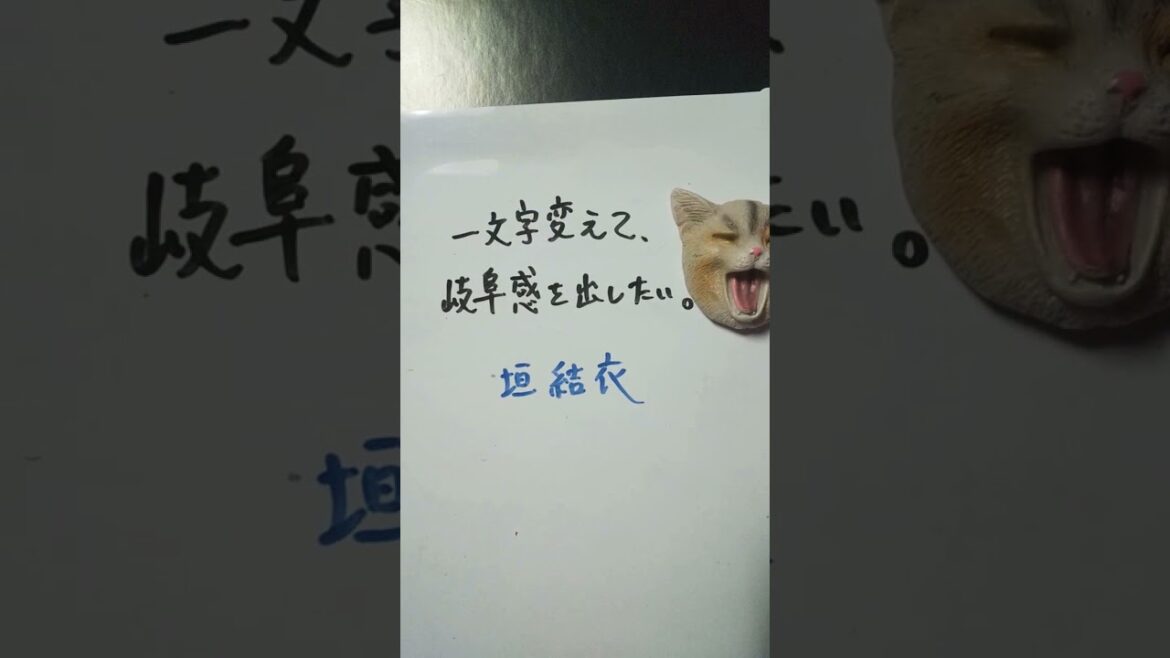 一文字変えて、
岐阜感を出したい。
垣結衣